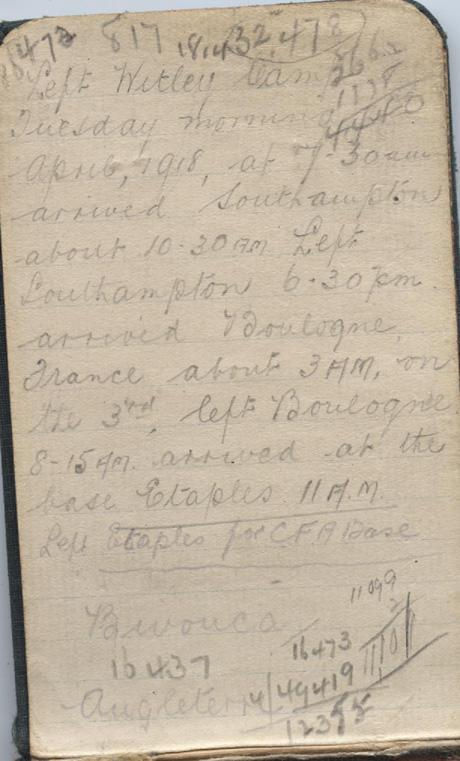 16473 817 18,14 32,478
Left Witley Cam
Tuesday morning
April, 1918, at 7-30am
arrived Southampton
about 10-30 AM. Left
Southampton 6-30 pm.
arrived Boulogne,
France about 3 AM, on
the 3rd, left Boulogne
8-15 AM. arrived at the
base Etaples 11 A.M.
Left Etaples for C.F.A Base
11099
2
Bivouca
16473
16437
49419
Angleterr
12355